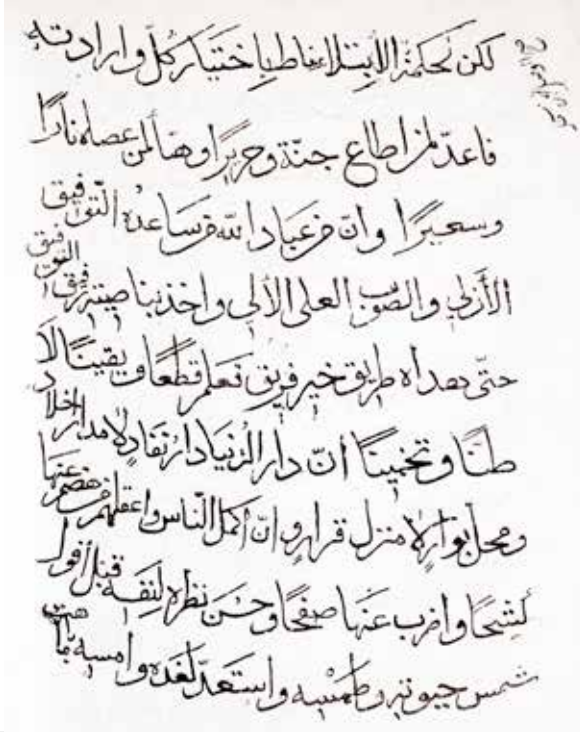 لكن لحكمة الابتلاء ناط باختيار كل وارادته
فاعدّ لمن اطاع جنّة وحريرًا وهيّأ لمن عصاه نارًا
وسعيرًا وانّ من عباد الله من ساعده التّوفيق
التوفيق
الأزلي والصّوب العلى الألي واخذ بناصيته رفيق
حتّى هداه طريق خير فريق فعلم قطعًا ويقينًا لا
ظنًّا وتخمينًا أنّ دار الدّنيا دار نفاد لا مدار اخلاد
ومحلّ بوار لا منزل قرار وانّ اكمل النّاس واعقلهم من هضم عنها
كشحًا واضرب عنها صفحًا وحسن نظره لنفسه قبل أفول
شمس حيوته وطمسه واستعدّ لغده وامسه